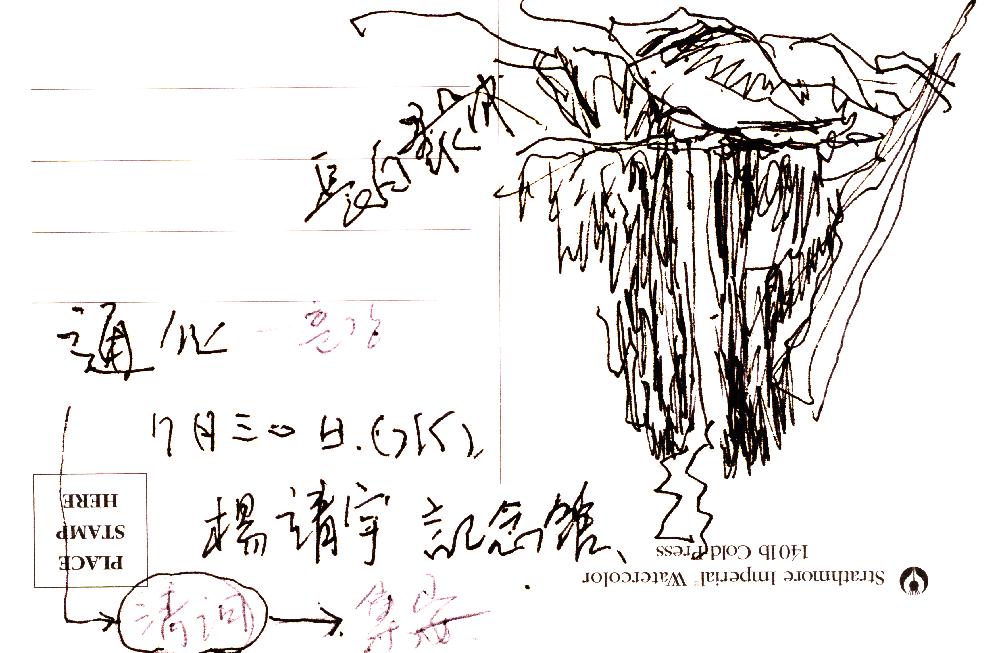 長白
通化 - 통화
7月三0日.(水).
楊靖宇 記念館、
清河 → 集安
PLACE
STAMP
HERE
Strathmore Imperial® Watercolor
140 lb Cold Press